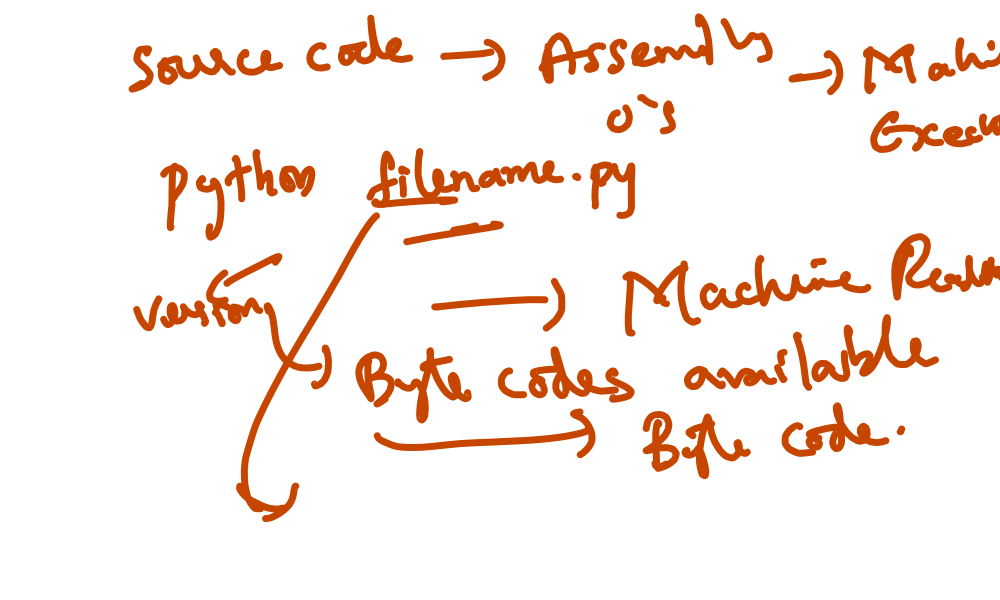 Source code → Assembly → Machi
O's Execu
Python filename.py
version → Machine Reada
→ Byte codes available
→ Byte code.